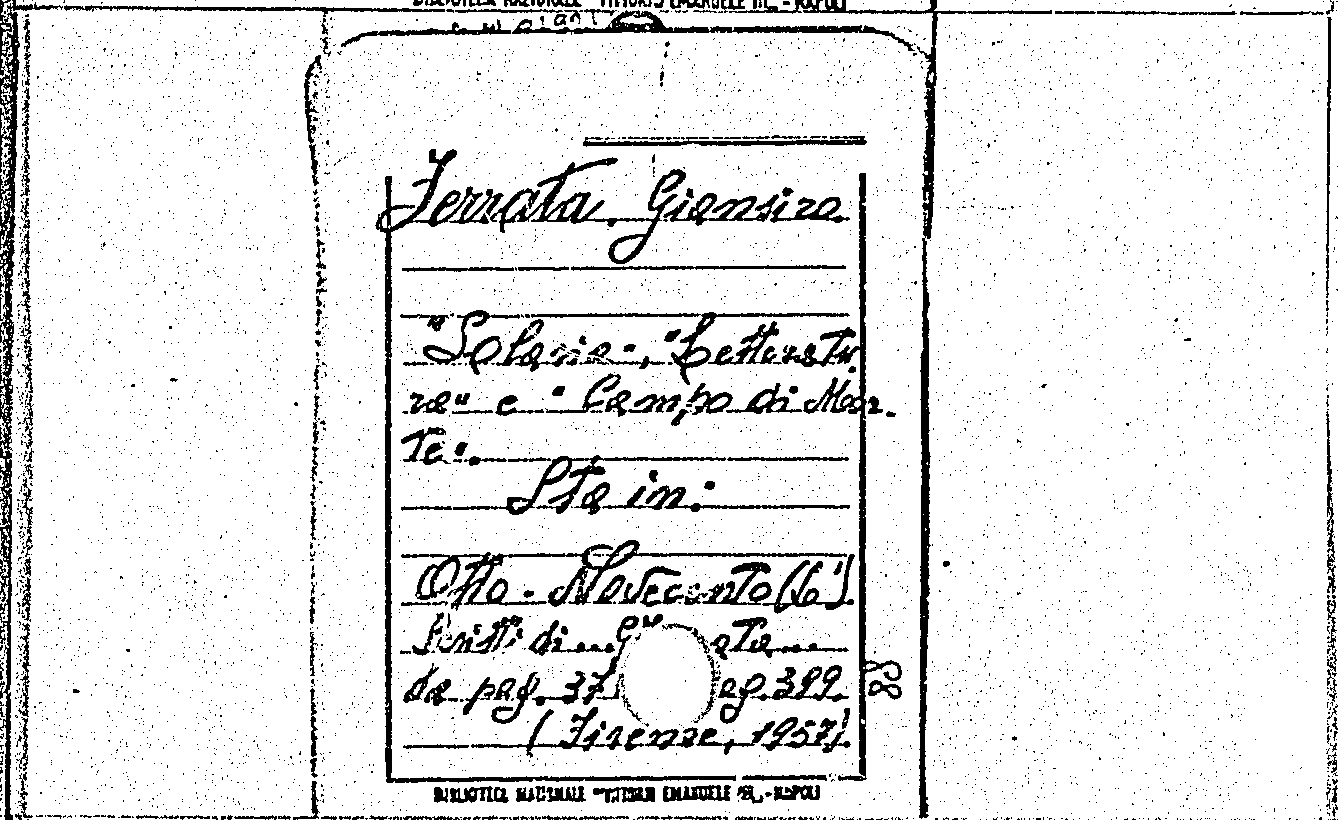 BIBLIOTECA NAZIONALE "VITTORIO EMANUELE III" - NAPOLI
Ferrata, Giansiro
"Solaria", "Letteratu
ra" e "Campo di Mar-
te".
Sta in:
Otto-Novecento (Lo').
Scritti di ... 
da pag. 37 ag. 399.
(Firenze, 1957).
BIBLIOTECA NAZIONALE "VITTORIO EMANUELE III" - NAPOLI